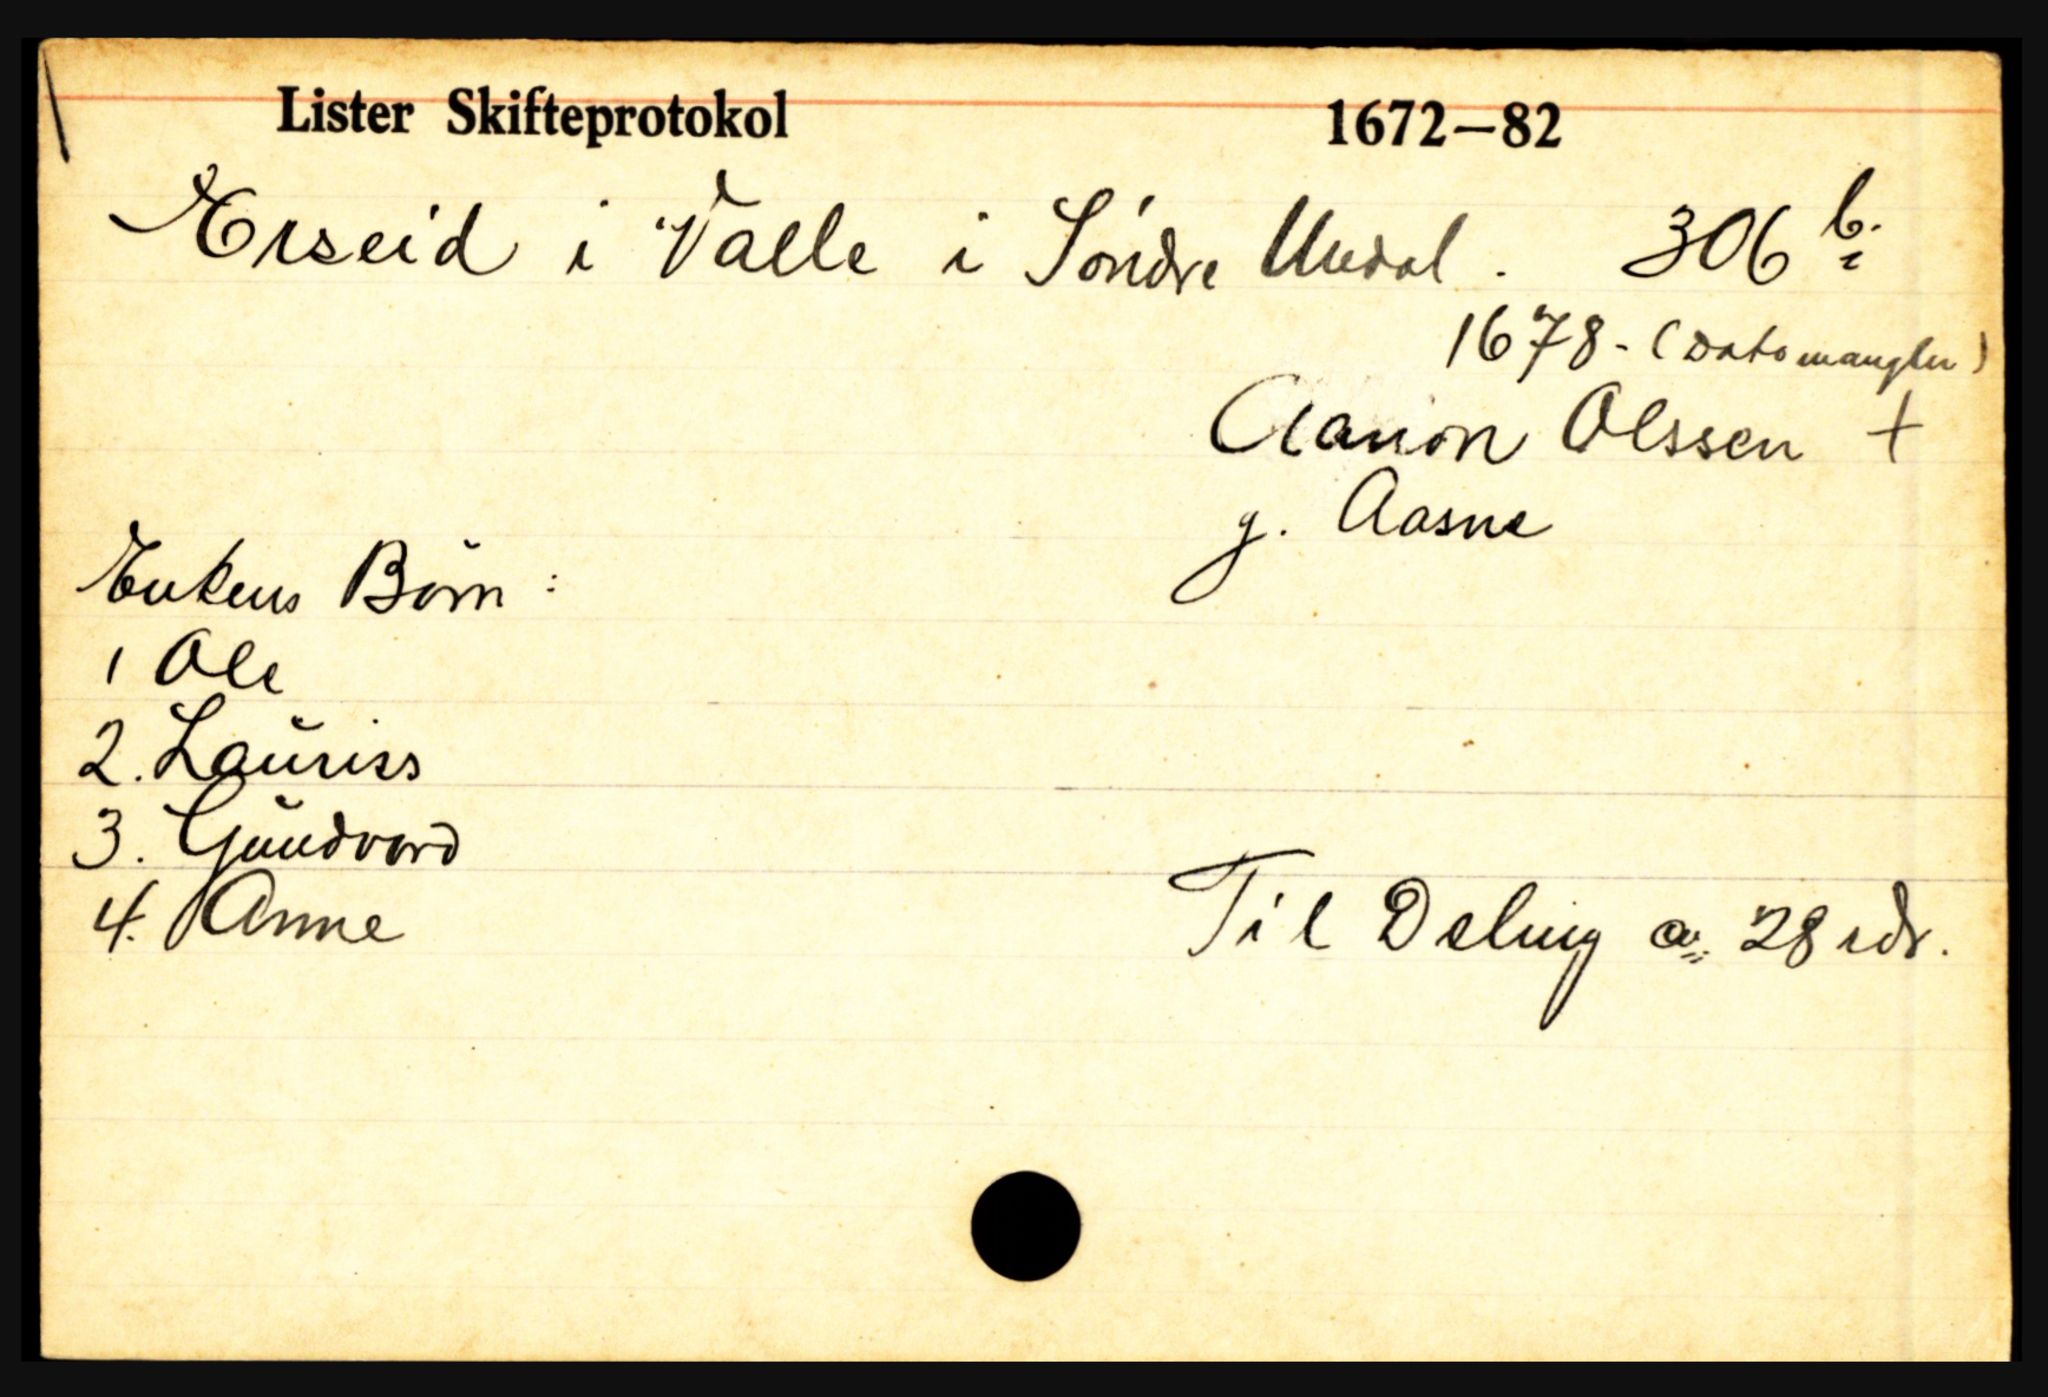 Lister Skifteprotokol 1672–82
Erseid i Valle i Söndre Undal. 306 b.
1678 - (Dato mangler)
Aanon Olssen +
g. Aasne
Enkens Börn :
1 Ole
2. Lauriss
3. Gundvord
4. Anne
Til Deling a. 28 rdr.